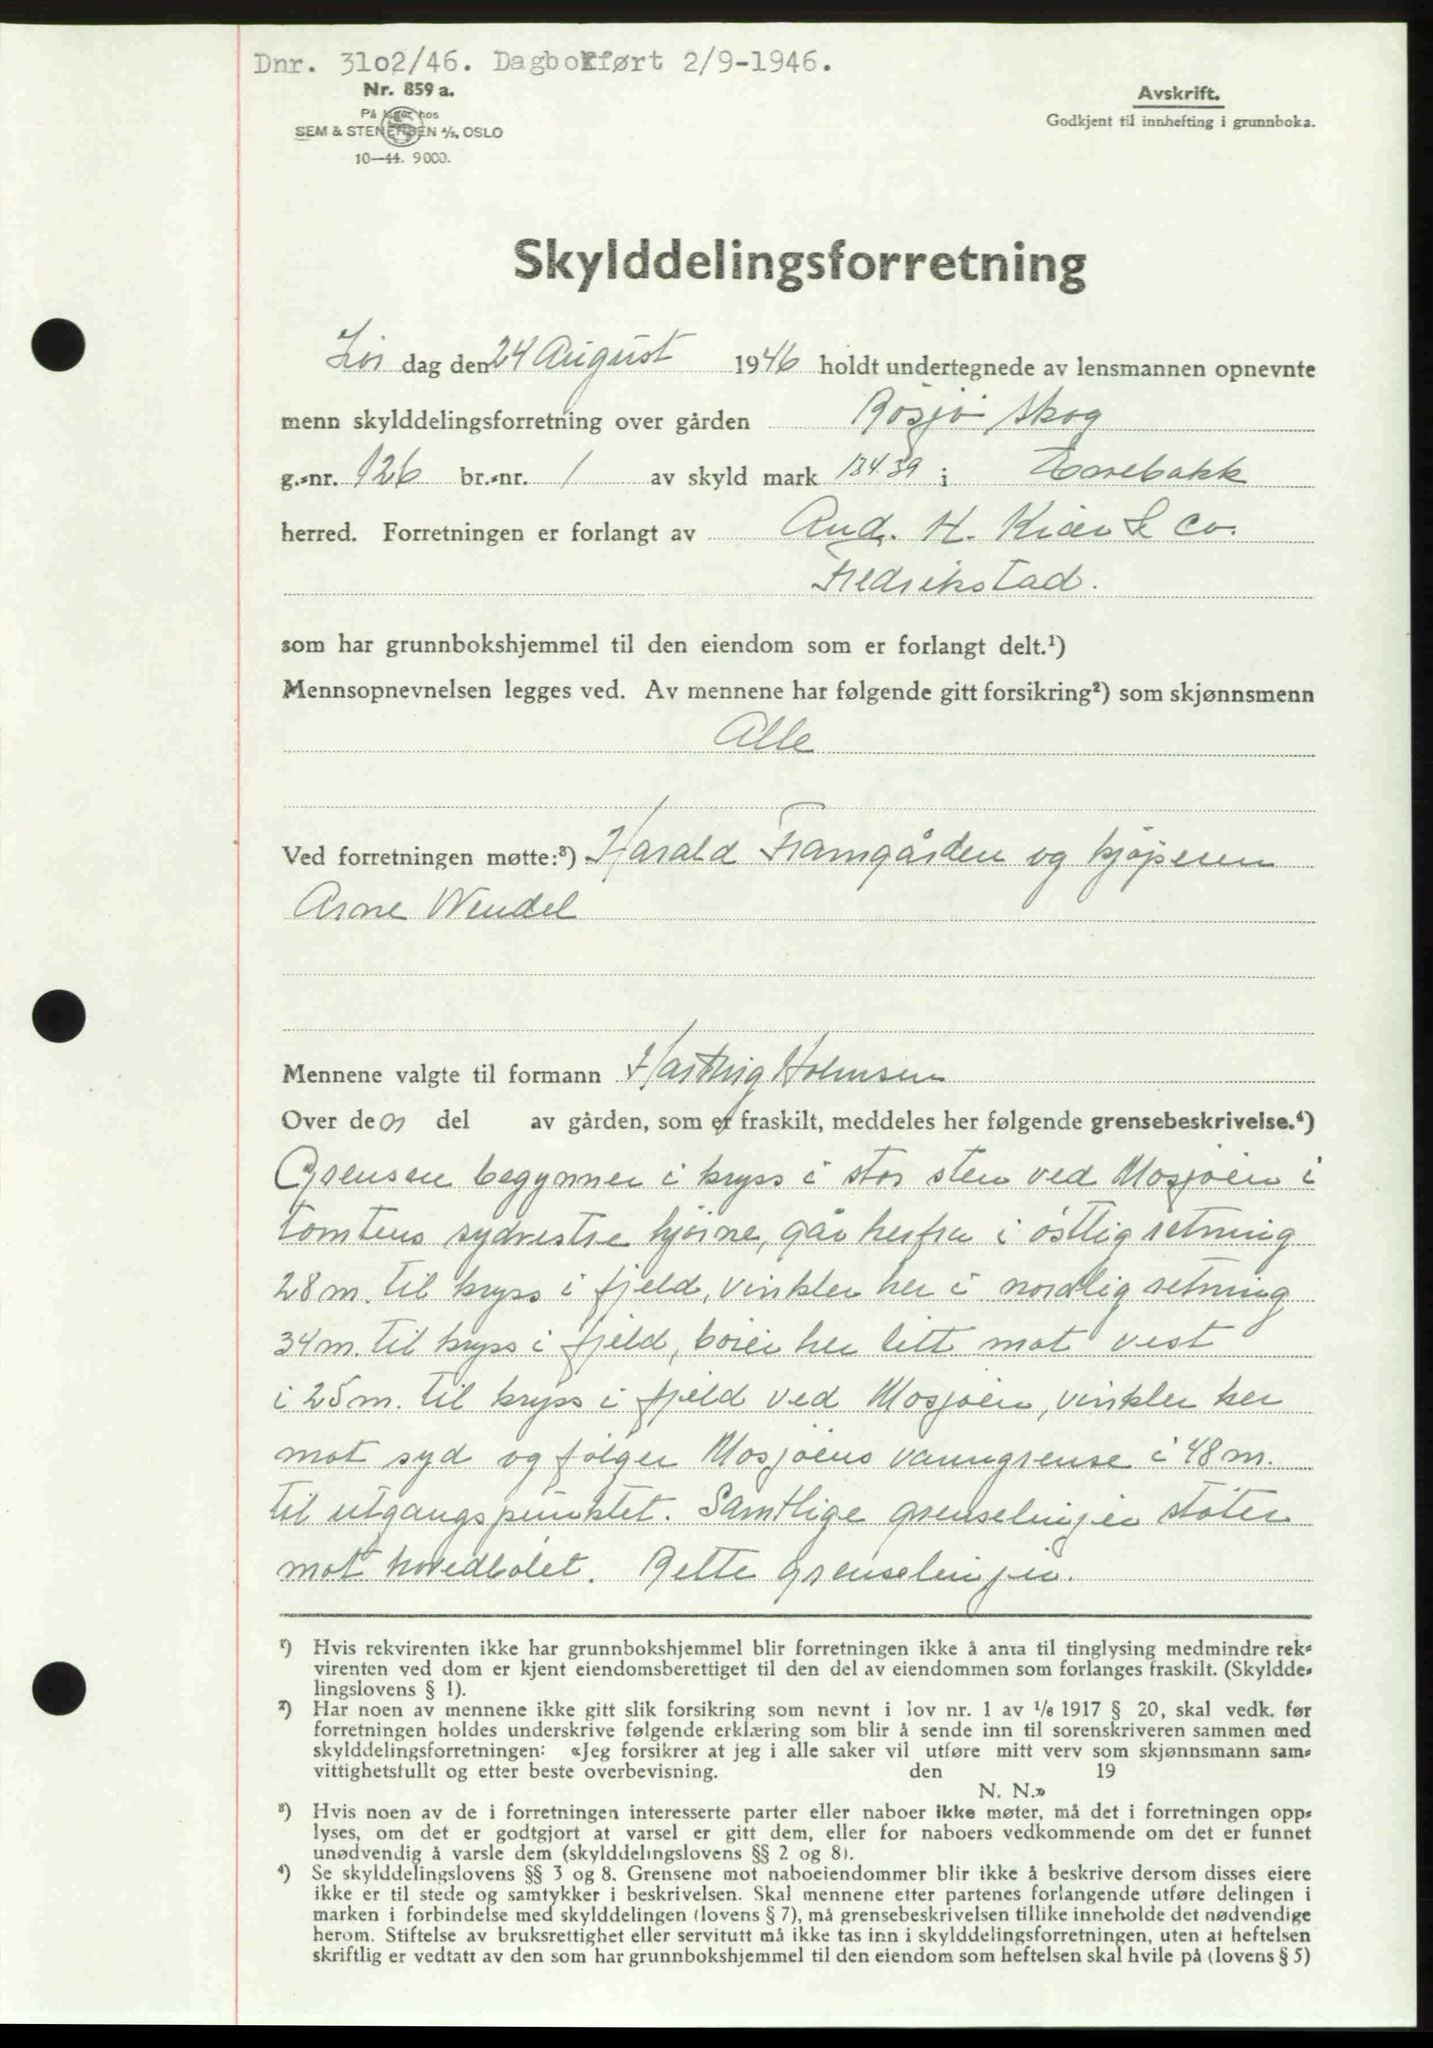 Dnr. 3102/46. Dagbokført 2/9-1946.
Nr. 859 a.
På lager hos
SEM & STENERSEN A/S, OSLO
10—44. 9000.
Avskrift.
Godkjent til innhefting i grunnboka.
Skylddelingsforretning
Lør dag den 24 August 1946 holdt undertegnede av lensmannen opnevnte
menn skylddelingsforretning over gården Røsjø skog
g.-nr. 126 br.-nr. 1 av skyld mark 134.39 i Enebakk
herred. Forretningen er forlangt av And. H. Kiær & Co.
Fredrikstad.
som har grunnbokshjemmel til den eiendom som er forlangt delt.¹)
Mennsopnevnelsen legges ved. Av mennene har følgende gitt forsikring²) som skjønnsmenn
Alle
Ved forretningen møtte:³) Harald Framgården og kjøperen
Arne Wendel
Mennene valgte til formann Hartvig Holmsen
Over den del av gården, som er fraskilt, meddeles her følgende grensebeskrivelse.⁴)
Grensen begynner i kryss i stor sten ved Mosjøen i
tomtens sydvestre hjørne, går herfra i østlig retning
28 m. til kryss i fjeld, vinkler her i nordlig retning
34 m. til kryss i fjeld, bøier her litt mot vest
i 25 m. til kryss i fjeld ved Mosjøen, vinkler her
mot syd og følger Mosjøens vanngrense i 48 m.
til utgangspunktet. Samtlige grenselinjer støter
mot hovedbølet. Rette grenselinjer.
¹) Hvis rekvirenten ikke har grunnbokshjemmel blir forretningen ikke å anta til tinglysing medmindre rek-
virenten ved dom er kjent eiendomsberettiget til den del av eiendommen som forlanges fraskilt. (Skyldde-
lingslovens § 1).
²) Har noen av mennene ikke gitt slik forsikring som nevnt i lov nr. 1 av 1/6 1917 § 20, skal vedk. før
forretningen holdes underskrive følgende erklæring som blir å sende inn til sorenskriveren sammen med
skylddelingsforretningen: «Jeg forsikrer at jeg i alle saker vil utføre mitt verv som skjønnsmann sam-
vittighetsfullt og etter beste overbevisning. den 19
N. N.»
³) Hvis noen av de i forretningen interesserte parter eller naboer ikke møter, må det i forretningen opp-
lyses, om det er godtgjort at varsel er gitt dem, eller for naboers vedkommende om det er funnet
unødvendig å varsle dem (skylddelingslovens §§ 2 og 8).
⁴) Se skylddelingslovens §§ 3 og 8. Grensene mot naboeiendommer blir ikke å beskrive dersom disses eiere
ikke er til stede og samtykker i beskrivelsen. Skal mennene etter partenes forlangende utføre delingen i
marken i forbindelse med skylddelingen (lovens § 7), må grensebeskrivelsen tillike inneholde det nødvendige
herom. Stiftelse av bruksrettighet eller servitutt må ikke tas inn i skylddelingsforretningen, uten at heftelsen
skriftlig er vedtatt av den som har grunnbokshjemmel til den eiendom som heftelsen skal hvile på (lovens § 5)